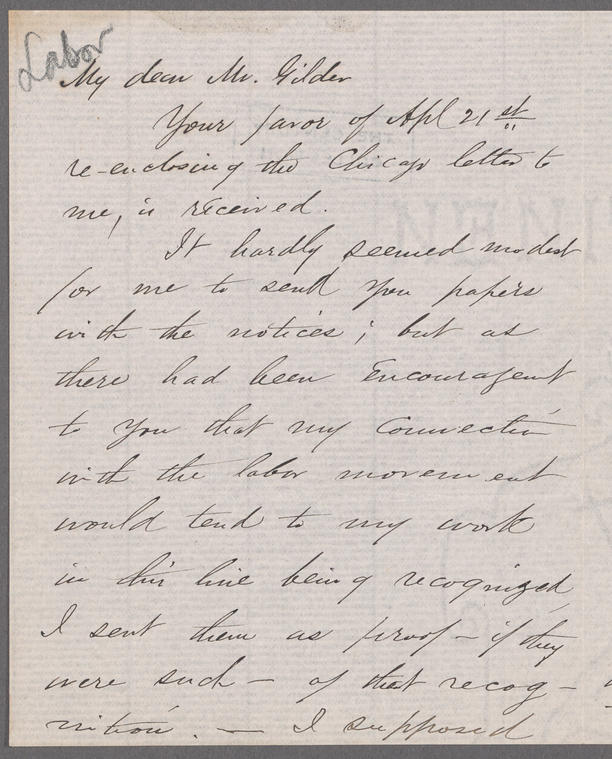 Labor
My dear Mr. Gilder
Your favor of Apl 21st
re-enclosing the Chicago letter to
me, is received.
It hardly seemed modest
for me to send you papers
with the notices; but as
there had been Encouragent
to you that my Connection
with the labor movement
would tend to my work
in this line being recognized,
I sent them as proof – if they
were such – of that recog-
nition. — I supposed